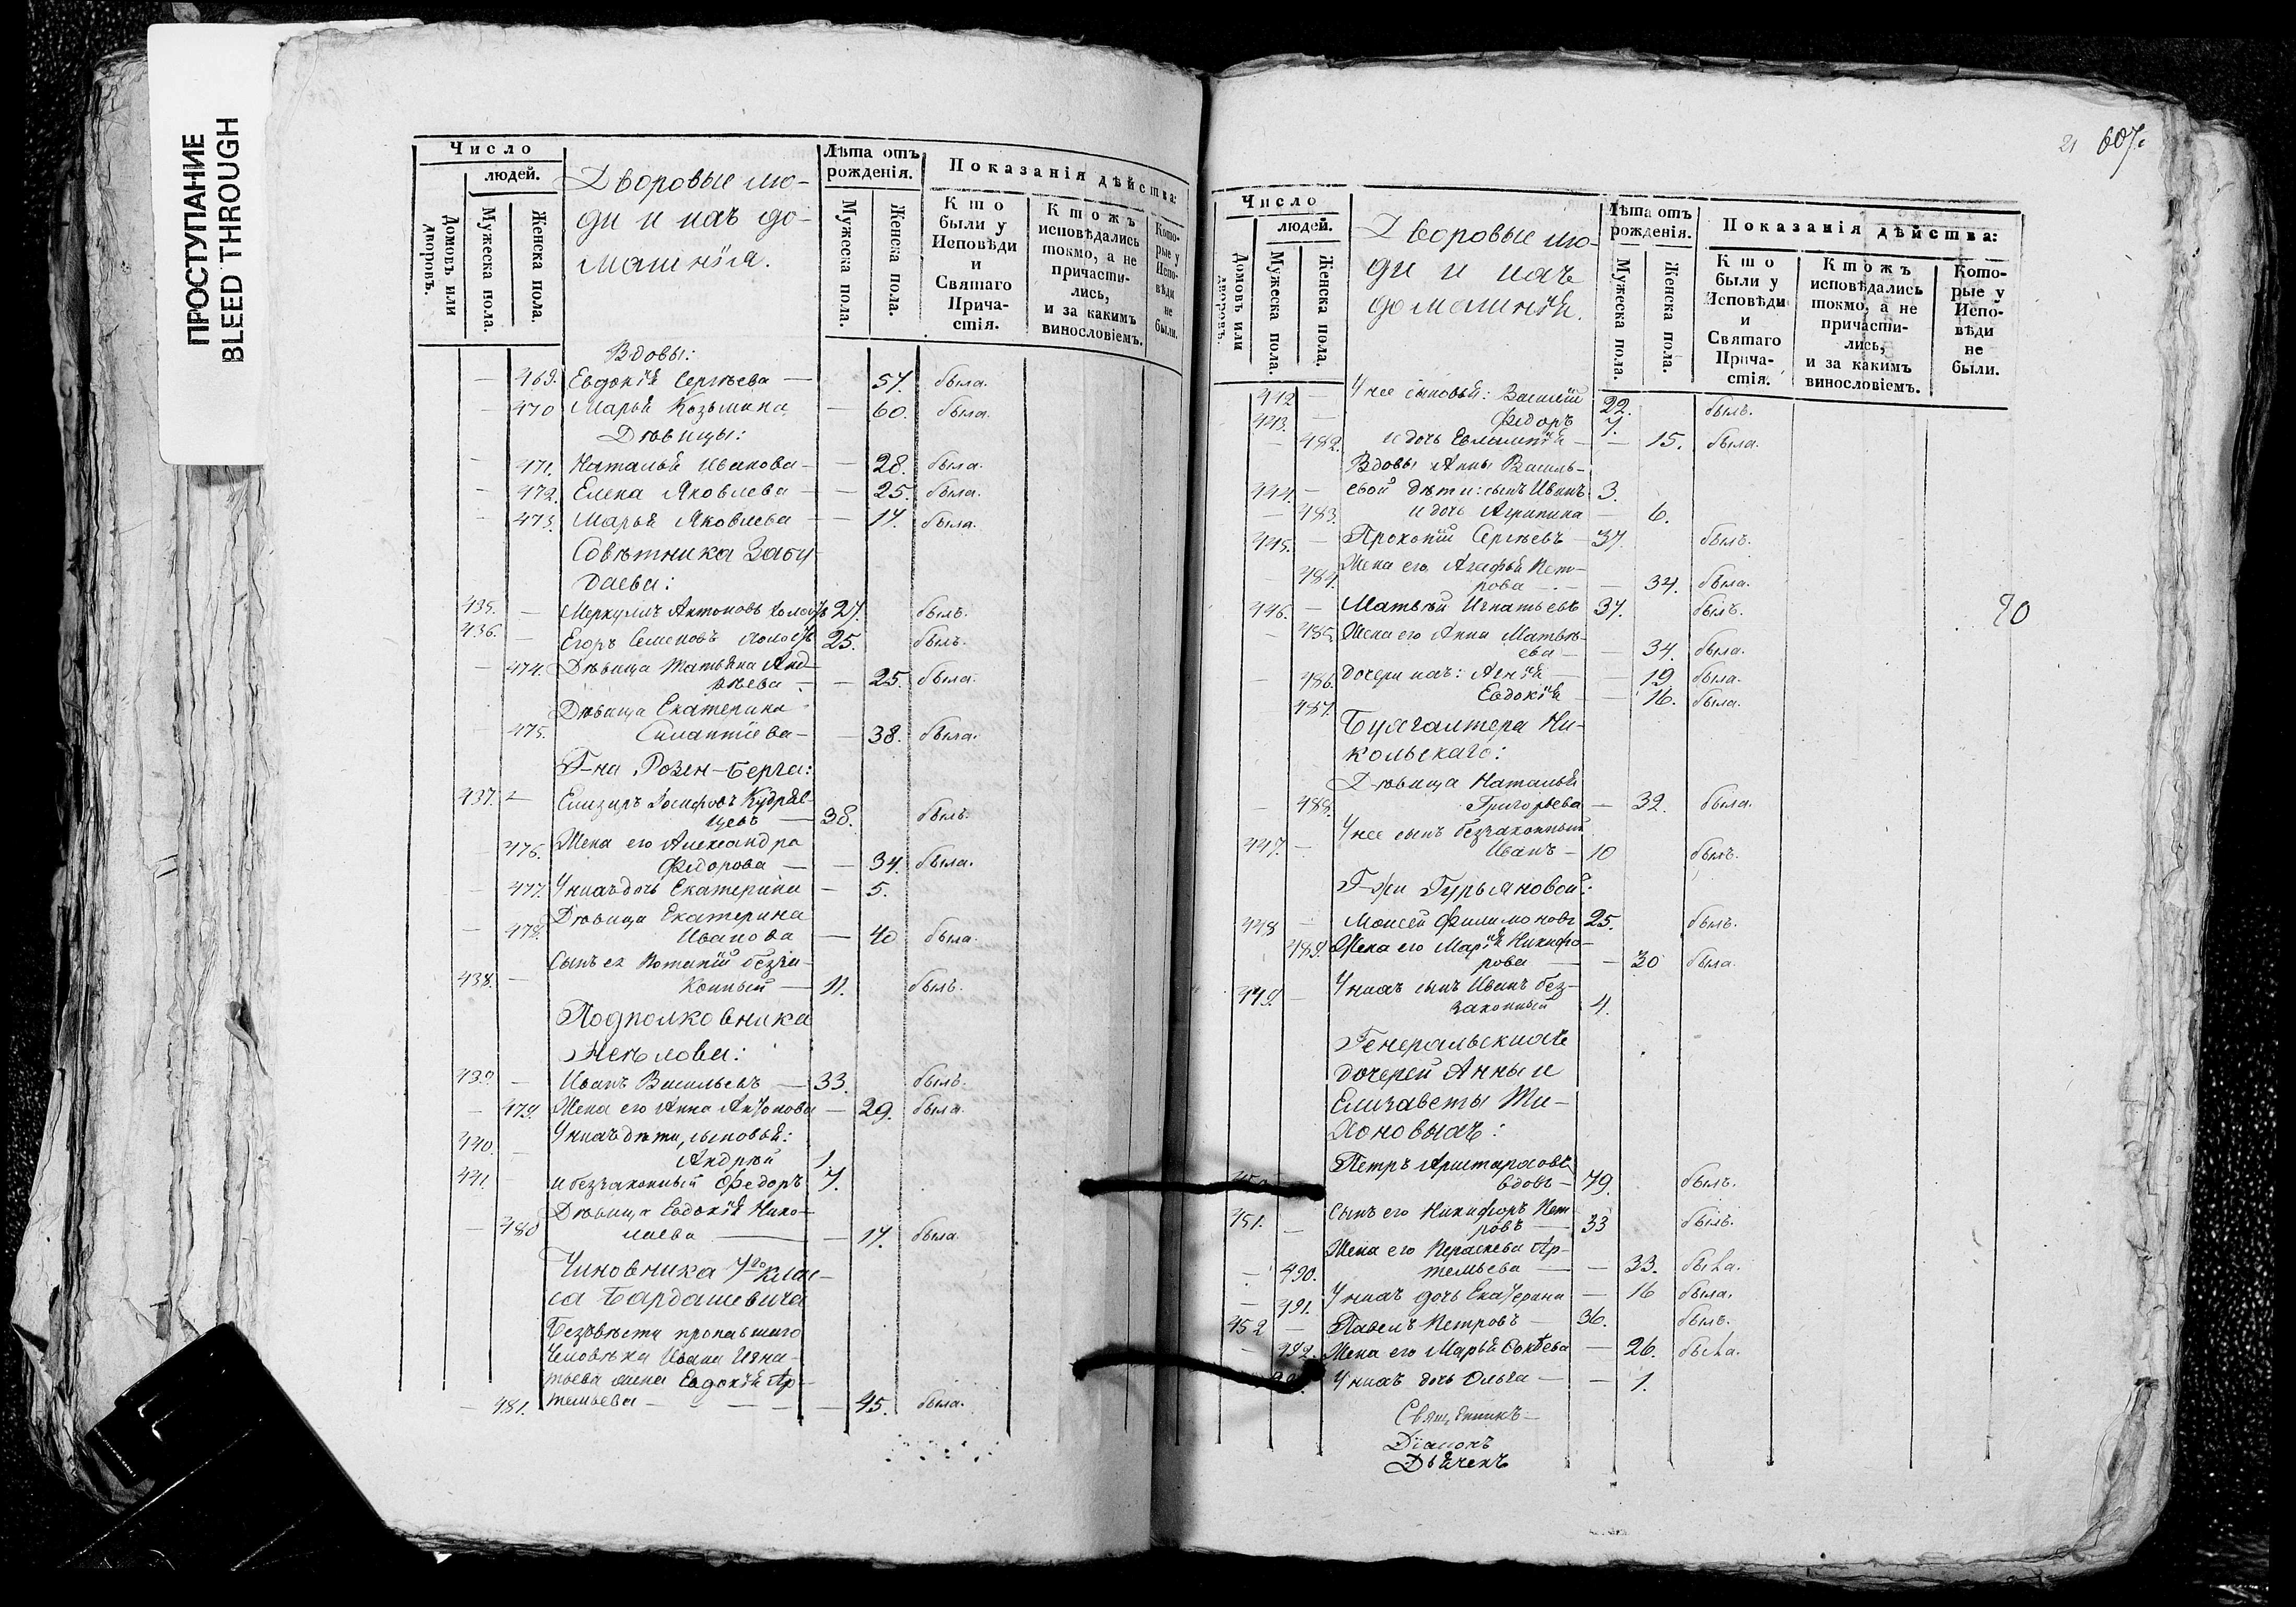 ПРОСТУПАНИЕ
BLEED THROUGH
Число
людей.
Домовъ или дворовъ.
Мужеска пола.
Женска пола.
Дворовые лю-
ди и ихъ до-
машнія.
Лѣта отъ рожденія.
Мужеска пола.
Женска пола.
Показанія дѣйства:
Кто были у Исповѣди и Святаго Прича-стія.
Ктожъ исповѣдались токмо, а не причасти-лись, и за какимъ винословіемъ.
Кото-рые у Испо-вѣди не были.
Вдовы:
— 469. Евдокія Сергѣева — 57. была.
— 470 Марья Козьмина — 60. была.
Дѣвицы:
— 471. Наталья Иванова — — 28. была.
— 472. Елена Яковлева — — 25. была.
— 473. Марья Яковлева — — 17. была.
Совѣтника
даева:
435. — Меркулъ Антоновъ холостъ 27. былъ.
436. — Егоръ Семеновъ холостъ 25. былъ.
— 474. Дѣвица Татьяна Анд-
рѣева — — 25. была.
Дѣвица Екатерина
— 475. Силантіева — — 38. была.
Г-на Розен-берга:
437. — Елизаръ Іосифовъ Кудряв-
цевъ — 38. былъ.
— 476. Жена его Александра
Федорова — — 34. была.
— 477. У нихъ дочь Екатерина — 5.
Дѣвица Екатерина
— 478. Иванова — 40 была.
Сынъ ея безза-
438. — конный — 11. былъ.
Подполковника
Неѣлова:
439. — Иванъ Васильевъ — 33. былъ.
— 479. Жена его Анна Антонова — 29. была.
У нихъ дѣти, сыновья:
440. — Андрей 1.
441. — и беззаконный Федоръ 7.
Дѣвица Евдокія Нико-
— 480 лаева — — 17. была.
Чиновника 7го клас-
са Бардашевича
Безъвѣсти пропавшаго
человѣка Ивана Игна-
тьева жена Евдокія Ар-
— 481. темьева — — — 45. была.
21 607.
Число
людей.
Домовъ или дворовъ.
Мужеска пола.
Женска пола.
Дворовые лю-
ди и ихъ
домашнія.
Лѣта отъ рожденія.
Мужеска пола.
Женска пола.
Показанія дѣйства:
Кто были у Исповѣди и Святаго Прича-стія.
Ктожъ исповѣдались токмо, а не причасти-лись, и за какимъ винословіемъ.
Кото-рые у Испо-вѣди не были.
442 — У нее сыновья: Василій 22. былъ.
443. — Федоръ 7.
— 482. и дочь Евлампія — — 15. была.
Вдовы Анны Василь-
444. — евой дѣти: сынъ Иванъ 3.
— 483. и дочь Агрипина — 6.
445. — Прокопій Сергѣевъ — 37. былъ.
Жена его, Агафья Пет-
— 484. рова — — 34. была.
446. — Матвѣй Игнатьевъ 37. былъ.
— 485. Жена его Анна Матвѣ-
ева — — 34. была.
— 486. дочери ихъ: Агнія — — 19 была.
487. Евдокія — — 16. была.
Бухгалтера Ни-
кольскаго:
Дѣвица Наталья
— 488. Григорьева — 32. была.
У нее сынъ беззаконный
447. — Иванъ — 10 былъ.
Г-жи Гурьяновой:
448 — Моисей Филимоновъ 25. былъ.
489. Жена его Марія Никифо-
рова — — 30 была.
У нихъ сынъ Иванъ без-
449. — законный 4.
Генеральскихъ
дочерей Анны и
Елизаветы Ти-
хоновыхъ:
Петръ Аристарховъ
вдовъ — 79. былъ.
Сынъ его Никифоръ Пет-
451. — ровъ — 33 былъ.
Жена его Параскева Ар-
— 490. темьева — — 33. была.
— 491. У нихъ дочь Екатерина — 16 была.
452 — Павелъ Петровъ — 36. былъ.
— 492. Жена его Марья — 26. была.
У нихъ дочь Ольга — — 1.
Священникъ
Діаконъ
Дьячекъ
90